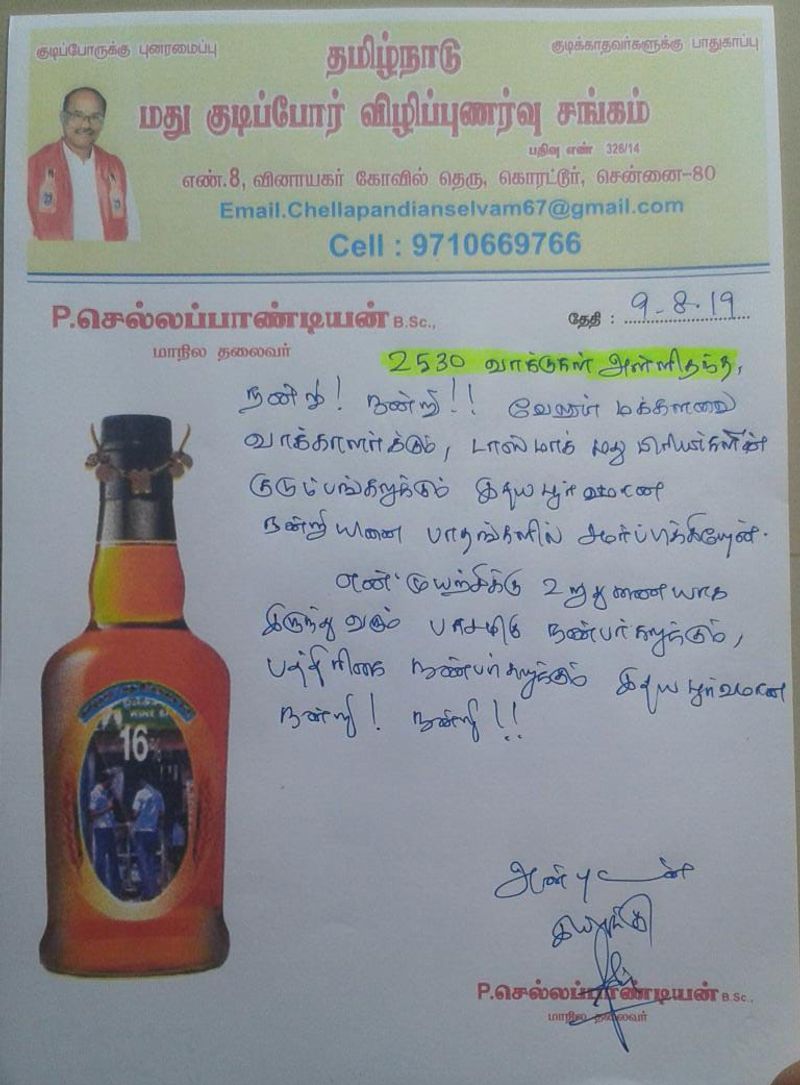 குடிப்போருக்கு புனரமைப்பு
குடிக்காதவர்களுக்கு பாதுகாப்பு
தமிழ்நாடு
மது குடிப்போர் விழிப்புணர்வு சங்கம்
பதிவு எண் 326/14
எண்.8, வினாயகர் கோவில் தெரு, கொரட்டூர், சென்னை-80
Email.Chellapandianselvam67@gmail.com
Cell : 9710669766
P.செல்லப்பாண்டியன் B.Sc.,
மாநில தலைவர்
தேதி : 9-8-19
2530 வாக்குகள் அள்ளிதந்த,
நன்றி! நன்றி!! வேலூர் மக்களவை
வாக்காளர்க்கும், டாஸ்மாக் மது பிரியர்களின்
குடும்பங்களுக்கும் இதயபூர்வமான
நன்றியினை பாதங்களில் சமர்ப்பிக்கிறேன்.
என் முயற்சிக்கு உறுதுணையாக
இருந்து வரும் பாசமிகு நண்பர்களுக்கும்,
பத்திரிகை நண்பர்களுக்கும் இதயபூர்வமான
நன்றி! நன்றி!!
WINE
16
அன்புடன்
P.செல்லப்பாண்டியன் B.Sc.,
மாநில தலைவர்